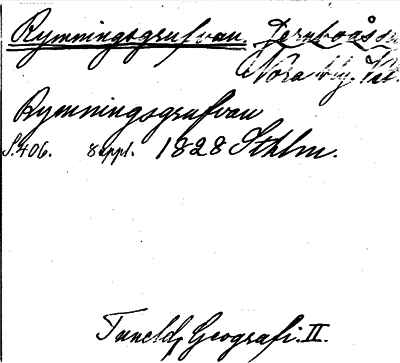 Rymningsgrufvan. Jernboås sn
Nora blg. Vstl.
Rymningsgrufvan
S. 406. 8 uppl. 1828 Sthlm.
Tuneld, Geografi. II.